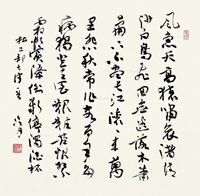 風急天高猿嘯哀渚清
沙白鳥飛迴無邊落木蕭
蕭下不盡長江滾滾來萬
里悲秋常作客百年多
病獨登臺艱難苦恨繁
霜鬢潦倒新停濁酒杯
杜工部七律一首